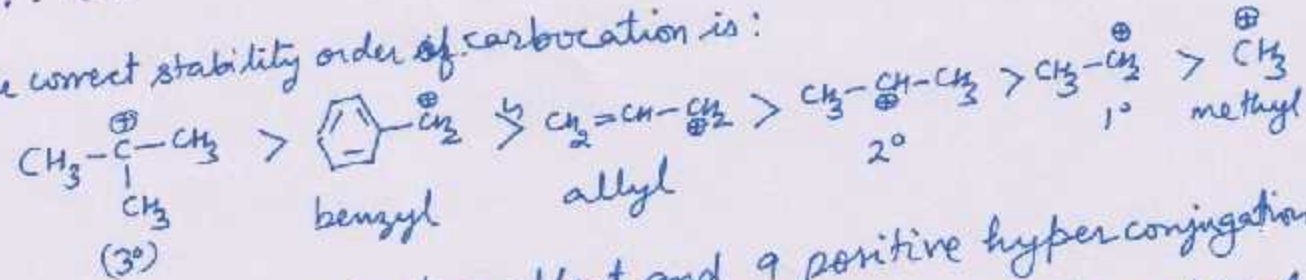 correct stability order of carbocation is:
CH₃-C⊕(CH₃)-CH₃ > C₆H₅-CH₂⊕ > CH₂=CH-CH₂⊕ > CH₃-CH⊕-CH₃ > CH₃-CH₂⊕ > CH₃⊕
(3°) benzyl allyl 2° 1° methyl
and 9 positive hyperconjugation